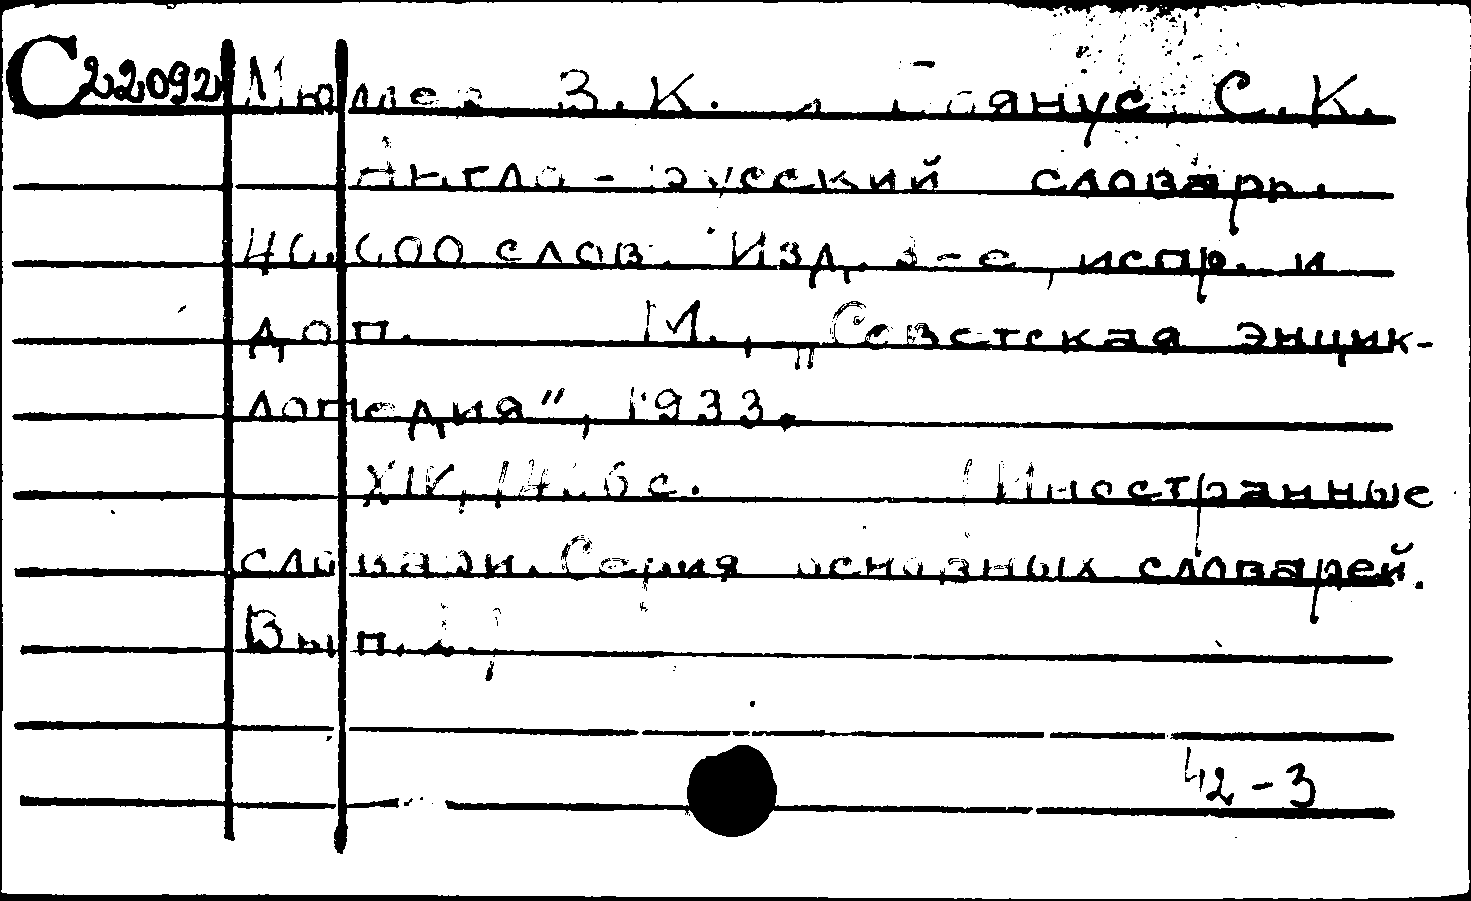 С22092 Мюллер З.К. и Боянус С.К.
Англо-русский словарь.
40.000 слов. Изд. 3-е, испр. и
доп. М., „Советская энцик-
лопедия", 1933.
XIV, с. (Иностранные
словари. Серия основных словарей.
Вып.
42-3